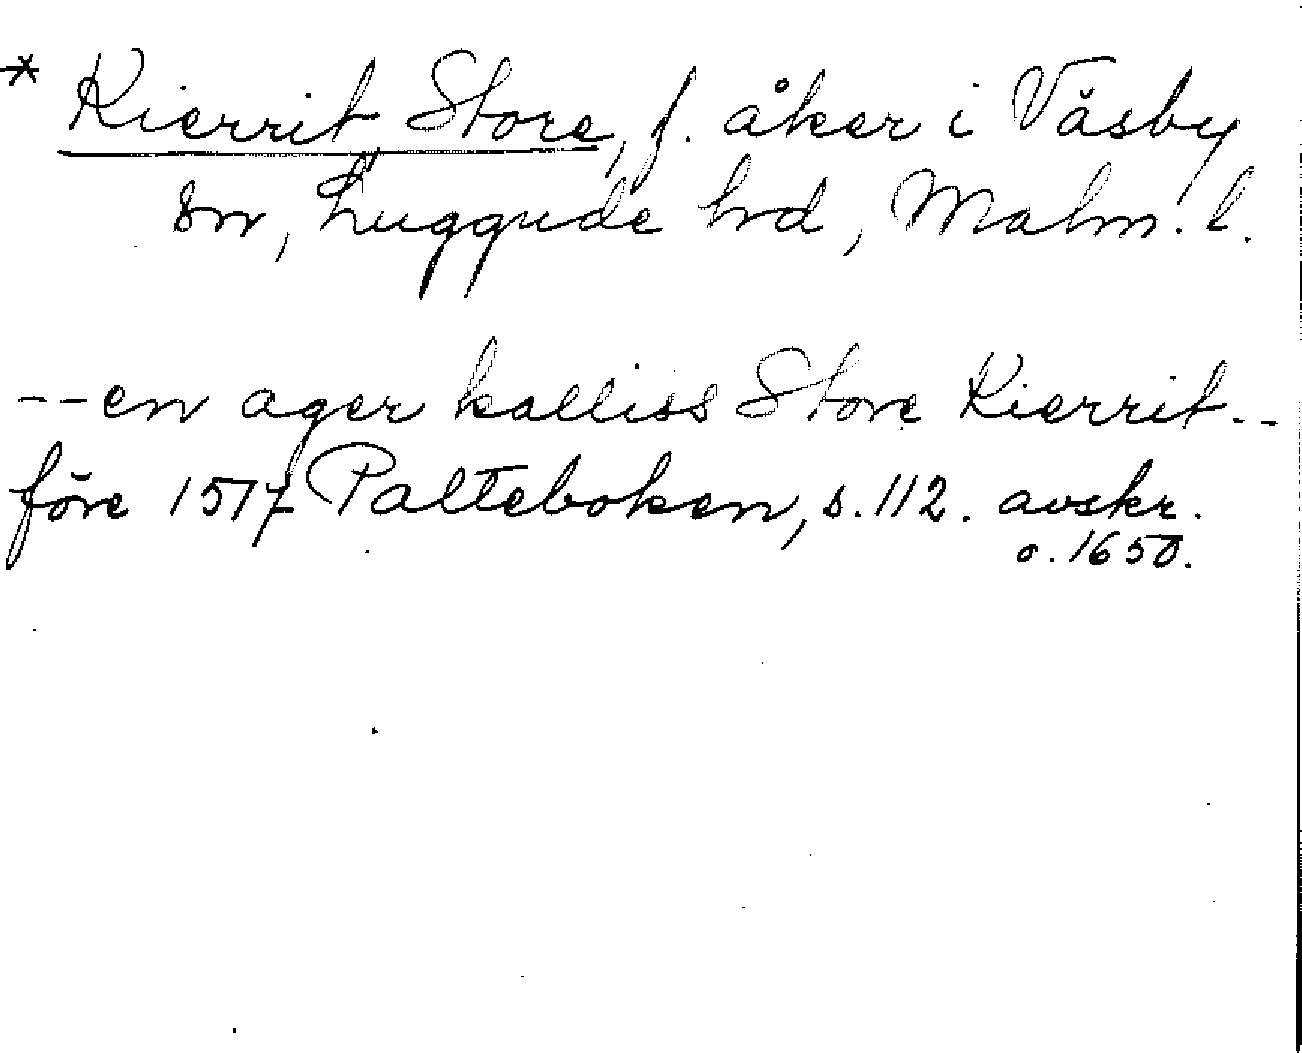 * Kierrit Store, f. åker i Väsby
sn, Luggude hd, Malm. l.
--en ager kalliss Store Kierrit--
före 1517 Palteboken, s. 112. avskr.
o. 1650.